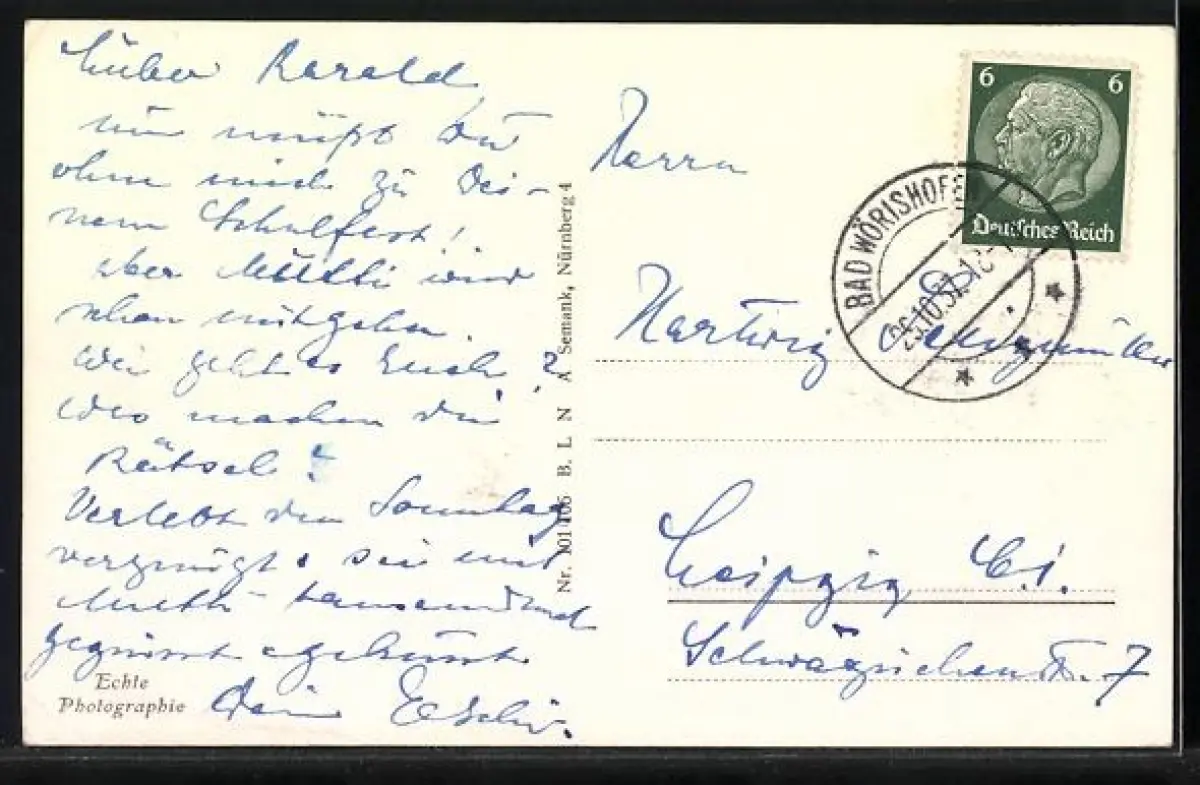 Lieber Harald
nun mußt Du
ohne mich zu Dei-
nem Schulfest!
aber Mutti wird
schon mitgehen.
Wie geht es Euch?
Was machen die
Rätsel?
Verlebt den Sonntag
vergnügt, sei mit
Mutti tausendmal
gegrüsst geküsst
Dein
Echte
Photographie
Nr. 101/106 B. L. N A Semank, Nürnberg 4
6 6
Deutsches Reich
BAD WÖRISHOFEN
Herrn
Hartwig
Leipzig C1.
Schwägrichenstr. 7